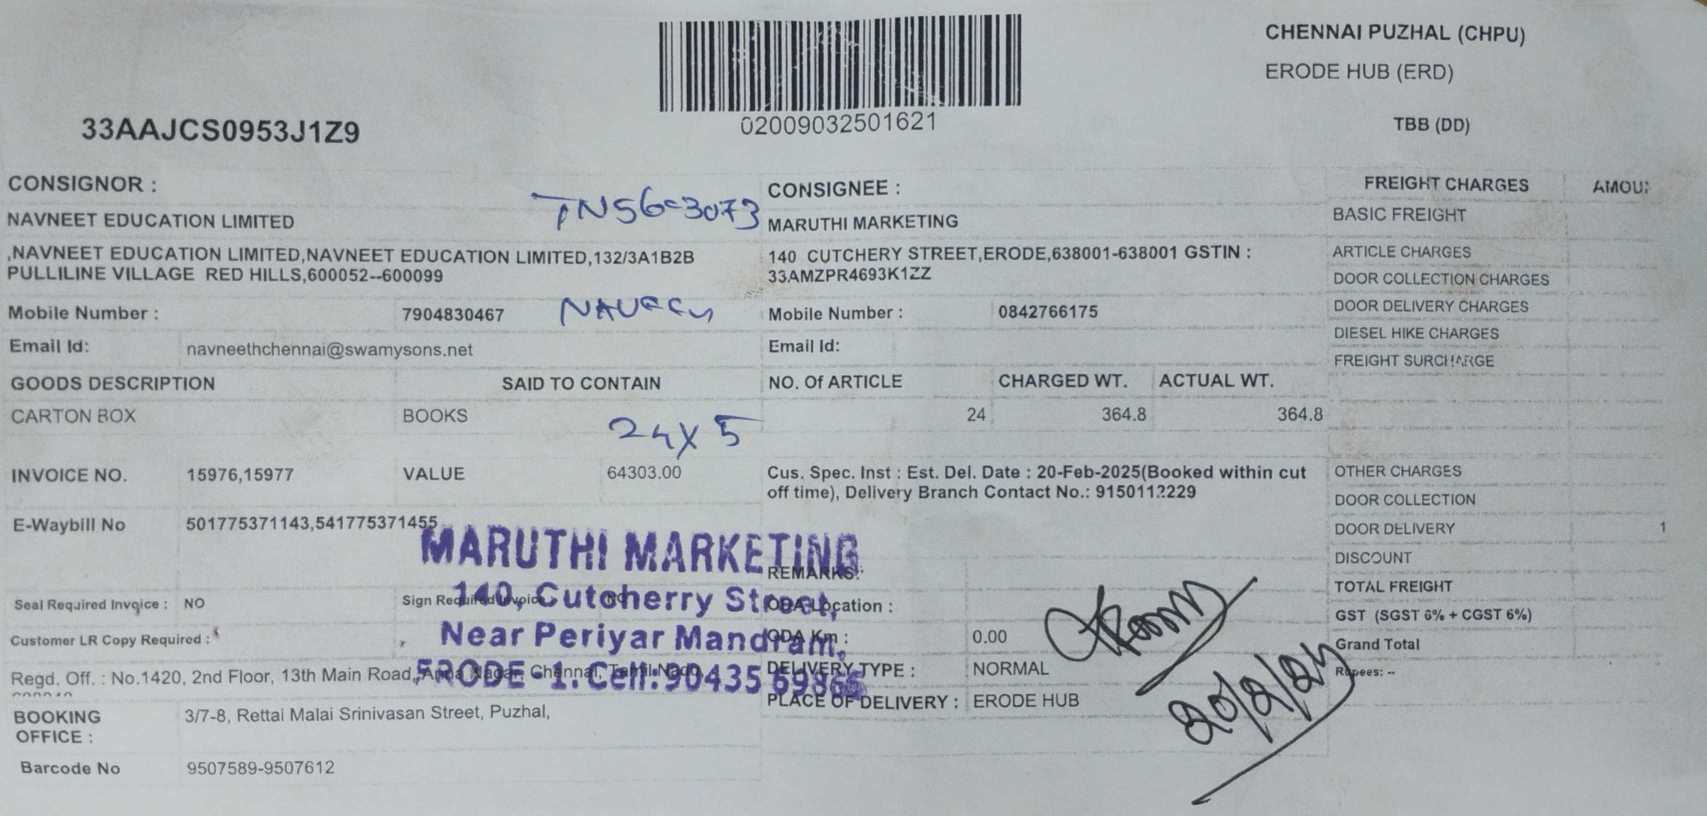 CHENNAI PUZHAL (CHPU)
ERODE HUB (ERD)
02009032501621
33AAJCS0953J1Z9
TBB (DD)
CONSIGNOR :
CONSIGNEE :
FREIGHT CHARGES
NAVNEET EDUCATION LIMITED
TN56-3073
MARUTHI MARKETING
BASIC FREIGHT
,NAVNEET EDUCATION LIMITED,NAVNEET EDUCATION LIMITED,132/3A1B2B
PULLILINE VILLAGE RED HILLS,600052--600099
140 CUTCHERY STREET,ERODE,638001-638001 GSTIN :
33AMZPR4693K1ZZ
ARTICLE CHARGES
DOOR COLLECTION CHARGES
Mobile Number : 7904830467
Mobile Number : 0842766175
DOOR DELIVERY CHARGES
DIESEL HIKE CHARGES
Email Id: navneethchennai@swamysons.net
Email Id:
FREIGHT SURCHARGE
GOODS DESCRIPTION SAID TO CONTAIN NO. Of ARTICLE CHARGED WT. ACTUAL WT.
CARTON BOX BOOKS 24 364.8 364.8
24 X 5
INVOICE NO. 15976,15977 VALUE 64303.00
Cus. Spec. Inst : Est. Del. Date : 20-Feb-2025(Booked within cut
off time), Delivery Branch Contact No.: 9150112229
OTHER CHARGES
DOOR COLLECTION
E-Waybill No 501775371143,541775371455
DOOR DELIVERY 1
DISCOUNT
MARUTHI MARKETING
140, Cutcherry Street,
Near Periyar Mandram,
ERODE - 1. Cell: 90435
REMARKS:
TOTAL FREIGHT
Seal Required Invoice : NO
Sign Required Invoice
ODA Location :
GST (SGST 6% + CGST 6%)
Customer LR Copy Required :
ODA Km : 0.00
Grand Total
Regd. Off. : No.1420, 2nd Floor, 13th Main Road, Anna Nagar, Chennai, Tamil Nadu
DELIVERY TYPE : NORMAL
Rupees: --
PLACE OF DELIVERY : ERODE HUB
20/2/24
BOOKING
OFFICE :
3/7-8, Rettai Malai Srinivasan Street, Puzhal,
Barcode No 9507589-9507612